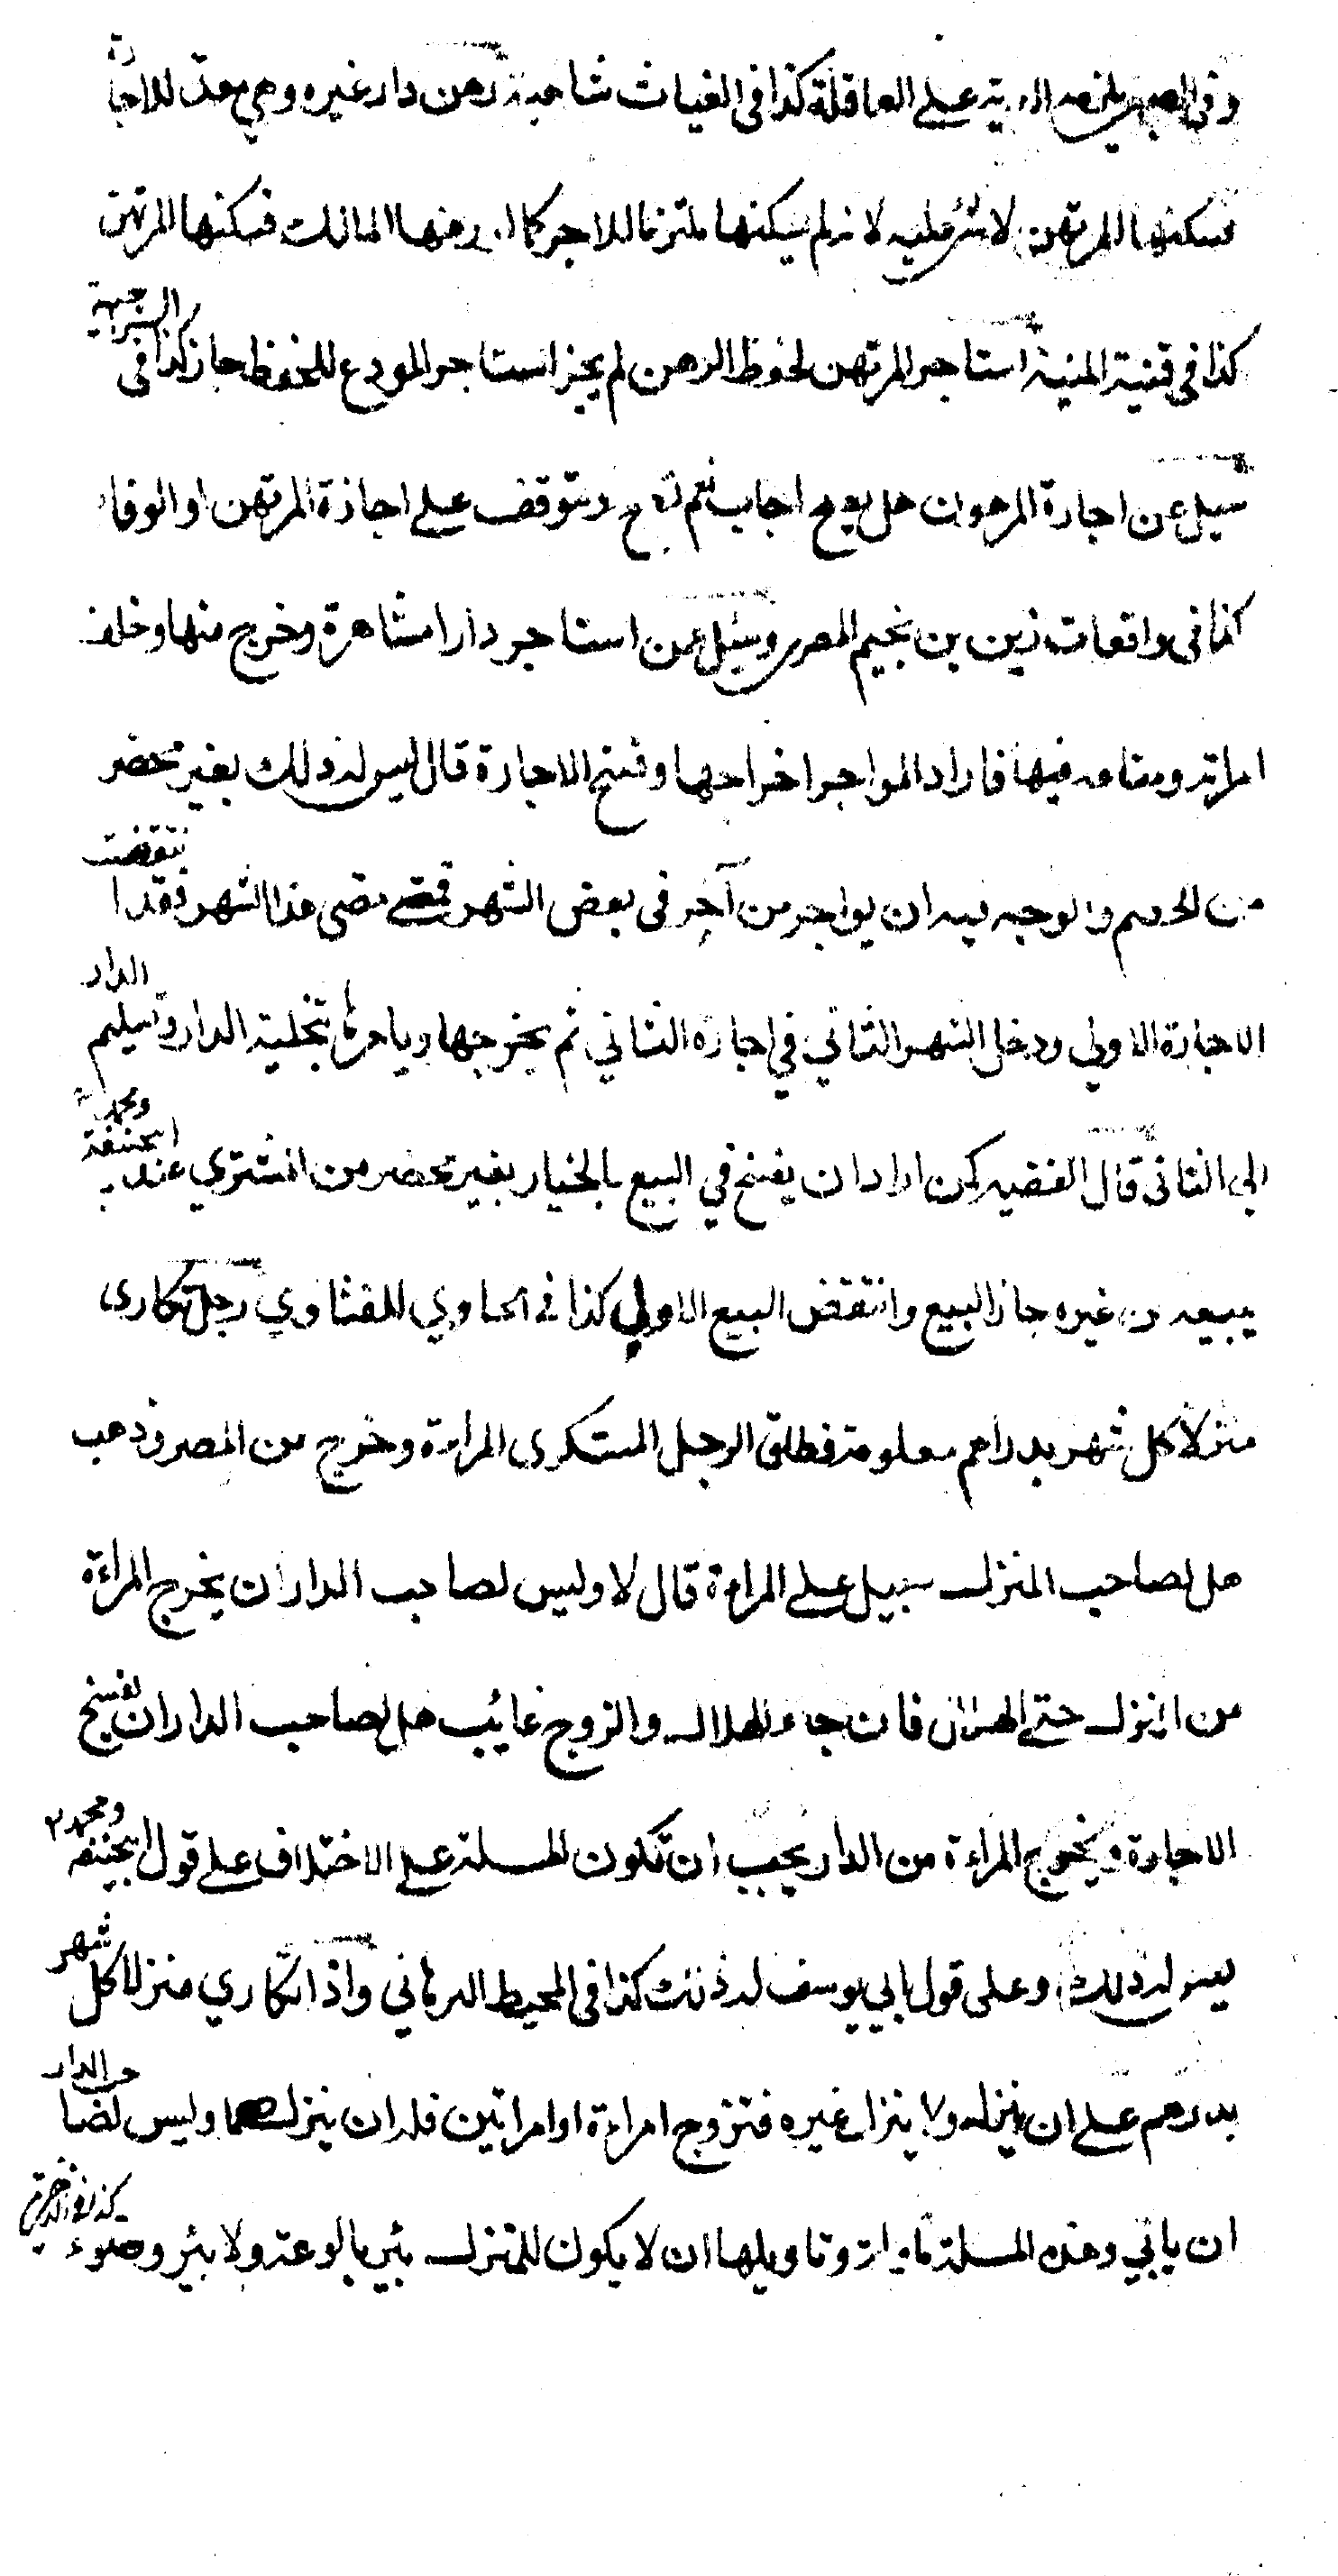 وفى الصبي يلزمه الدية على العاقلة كذا فى الغياث شاهدة رهن دار غيره وهي معدة للاجارة
فسكنها المرتهن لا شئ عليه لانه لم يسكنها ملتزما للاجر كما لو رهنها المالك فسكنها المرتهن
كذا فى قنية المنية استاجر المرتهن لحفظ الرهن لم يجز استاجر المودع للحفظ جاز كذا فى السراجية
سيل عن اجارة المرهون هل يصح اجاب نعم تصح وتتوقف على اجازة المرتهن او الوفاء
كذا فى واقعات زين بن نجيم المصرى وسئل عمن استاجر دارا مشاهرة وخرج منها وخلف
امراته ومتاعه فيها فاراد المواجر اخراجها وفسخ الاجارة قال ليس له ذلك بغير محضر
من الخصم والوجه فيه ان يواجر من آخر فى بعض الشهر فمتى مضى هذا الشهر فقد انتقضت
الاجارة الاولي ودخل الشهر الثاني في اجارة الثاني ثم يخرجها ويامرها بتخلية الدار وتسليم الدار
الى الثانى قال الفقيه كمن اراد ان يفسخ في البيع بالخيار بغير محضر من المشتري عند ابيحنيفة ومحمد
يبيعه من غيره جاز البيع وانتقض البيع الاولي كذا فى الحاوي للفتاوي رجل تكارى
منزلا كل شهر بدراهم معلومة فطلق الرجل المستكرى المراءة وخرج من المصر وذهب
هل لصاحب المنزل سبيل على المراءة قال لا وليس لصاحب الدار ان يخرج المراءة
من المنزل حتى الهلال فان جاء الهلال والزوج غائب هل لصاحب الدار ان يفسخ
الاجارة ويخرج المراءة من الدار يجب ان تكون المسلة على الاختلاف على قول ابيحنيفة ومحمد
ليس له ذلك وعلى قول ابي يوسف له ذلك كذا فى المحيط البرهاني واذا تكاري منزلا كل شهر
بدرهم على ان ينزله ولا ينزل غيره فتزوج امراءة او امراتين فله ان ينزلهما وليس لصاحب الدار
ان يابي وهذه المسلة ماولة وتاويلها ان لا يكون للمنزل بئر بالوعة ولا بئر وضوء كذا فى الذخيرة